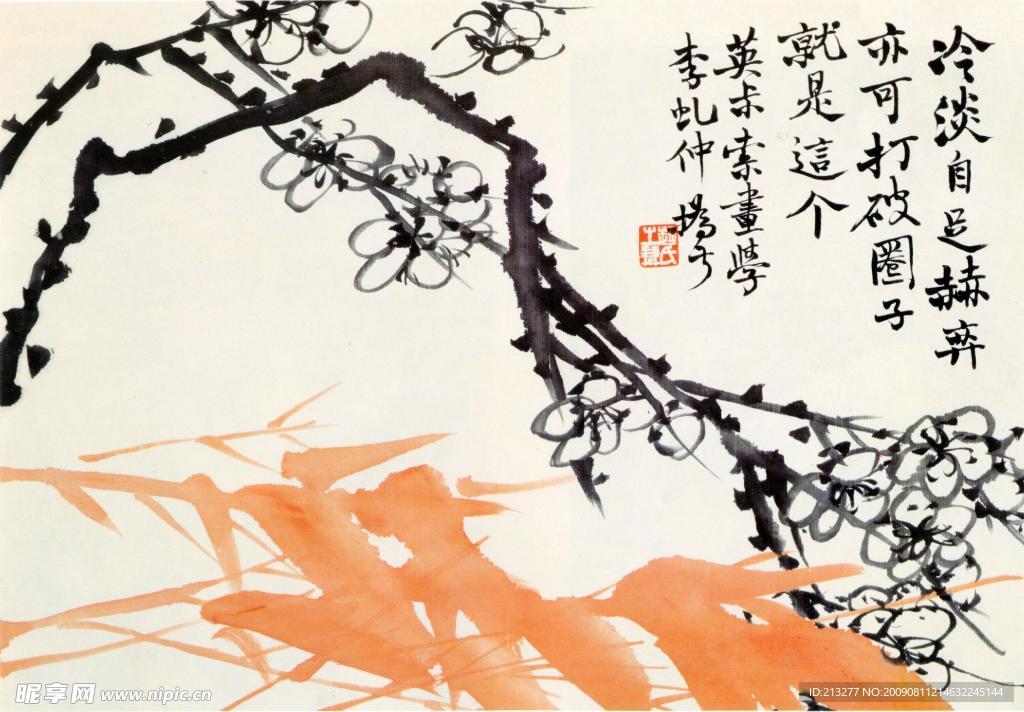 冷淡自足赫弈
亦可打破圈子
就是這个
英尗索畫學
李虬仲 撝尗
昵享网 www.nipic.cn
ID:213277 NO:20090811214632245144